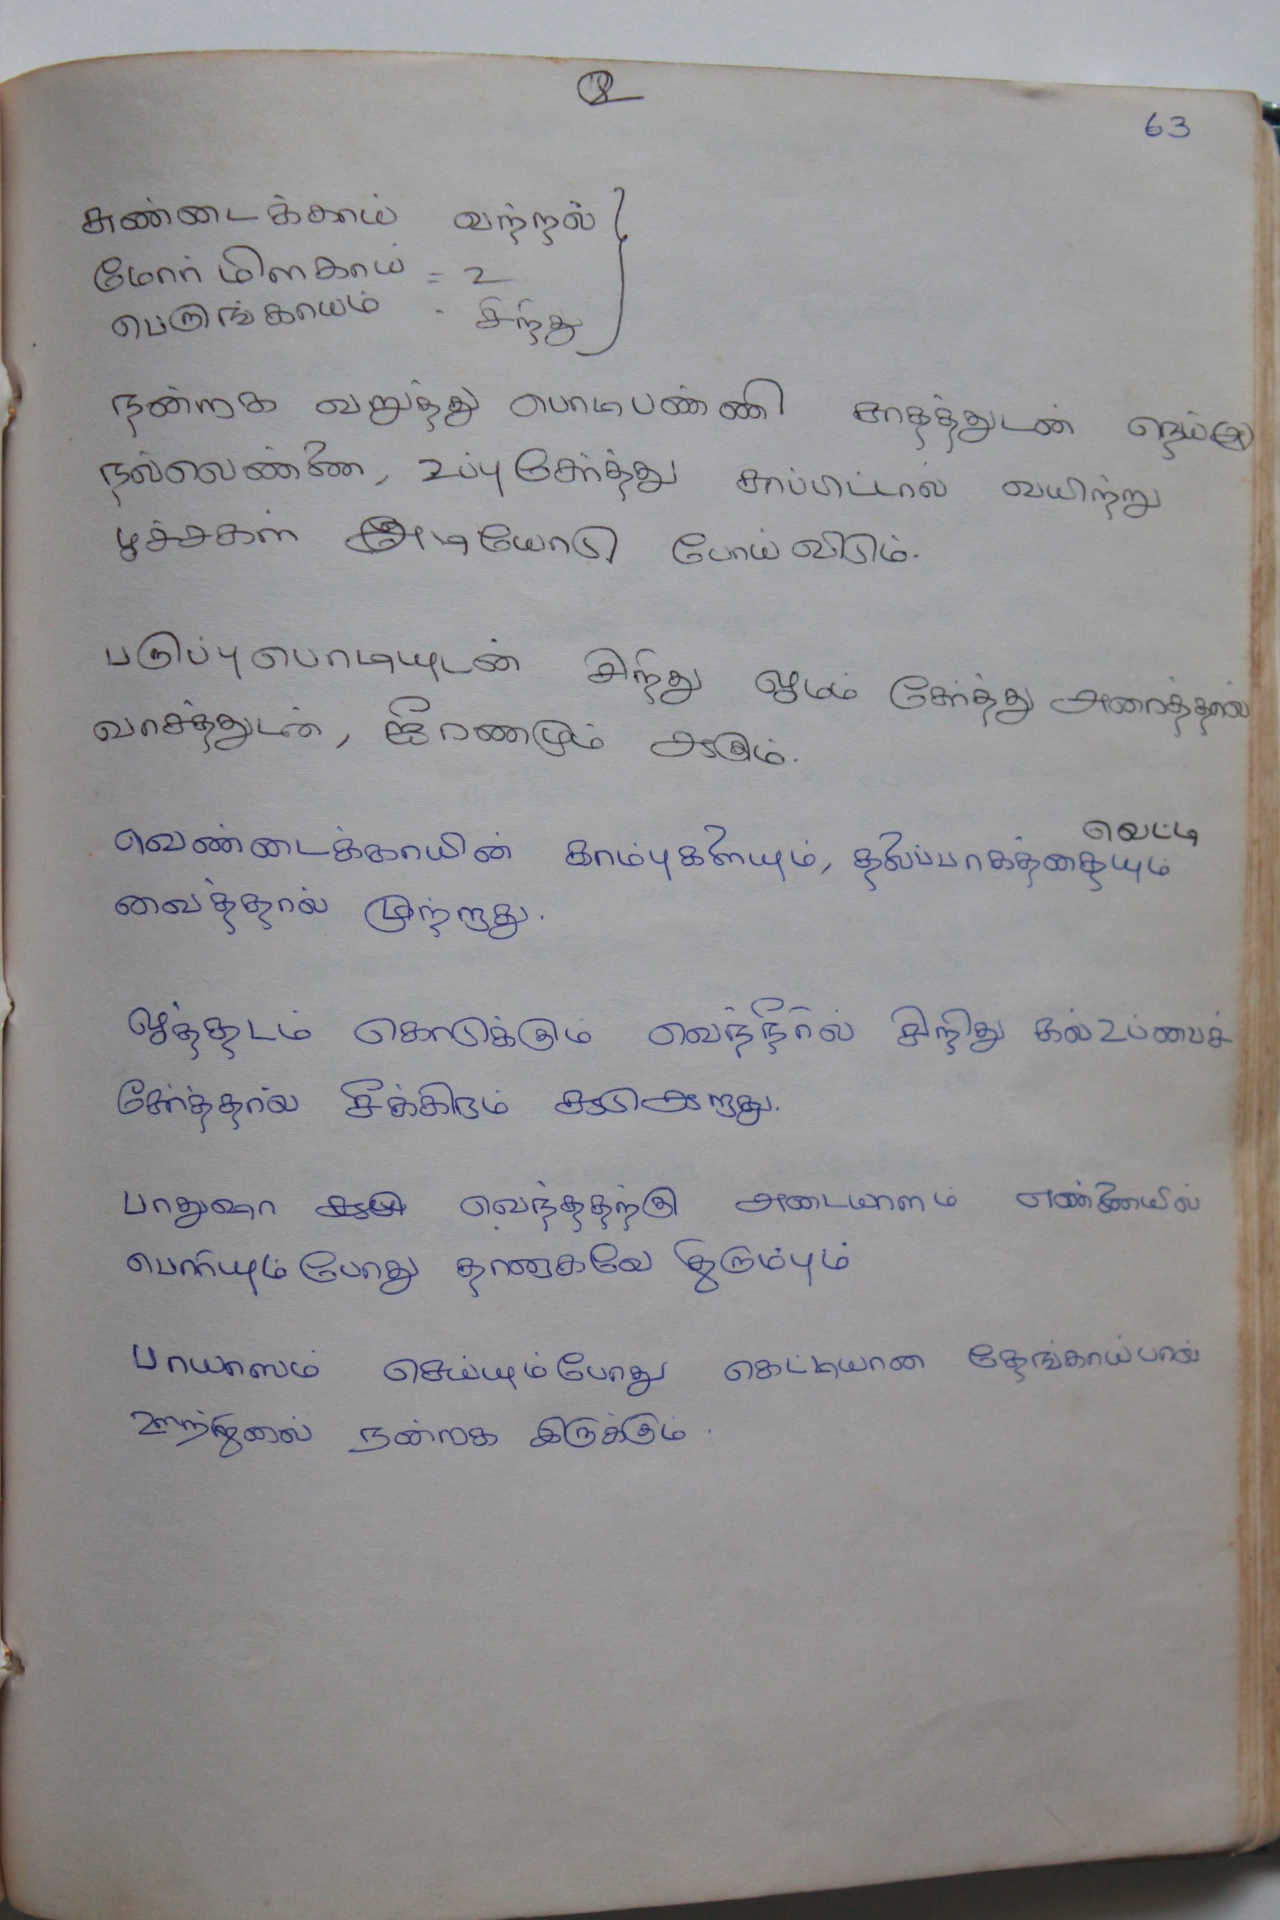 63
சுண்டைக்காய் வற்றல்
மோர் மிளகாய் = 2
பெருங்காயம் - சிறிது
நன்றாக வறுத்து பொடிபண்ணி சாதத்துடன் நெய்
நல்லெண்ணை, உப்பு சேர்த்து சாப்பிட்டால் வயிற்று
பூச்சிகள் அடியோடு போய் விடும்.
பருப்பு பொடியுடன் சிறிது ஓமம் சேர்த்து அரைத்தால்
வாசத்துடன், ஜீரணமும் ஆகும்.
வெண்டைக்காயின் காம்புகளையும், தலைப்பாகத்தையும் வெட்டி
வைத்தால் முற்றாது.
ஒத்தடம் கொடுக்கும் வெந்நீரில் சிறிது கல் உப்பைச்
சேர்த்தால் சீக்கிரம் சூடு ஆறாது.
பாதுஷா வெந்ததற்கு அடையாளம் எண்ணையில்
பொரியும் போது தானாகவே திரும்பும்
பாயாஸம் செய்யும்போது கெட்டியான தேங்காய்பால்
ஊற்றினால் நன்றாக இருக்கும்.